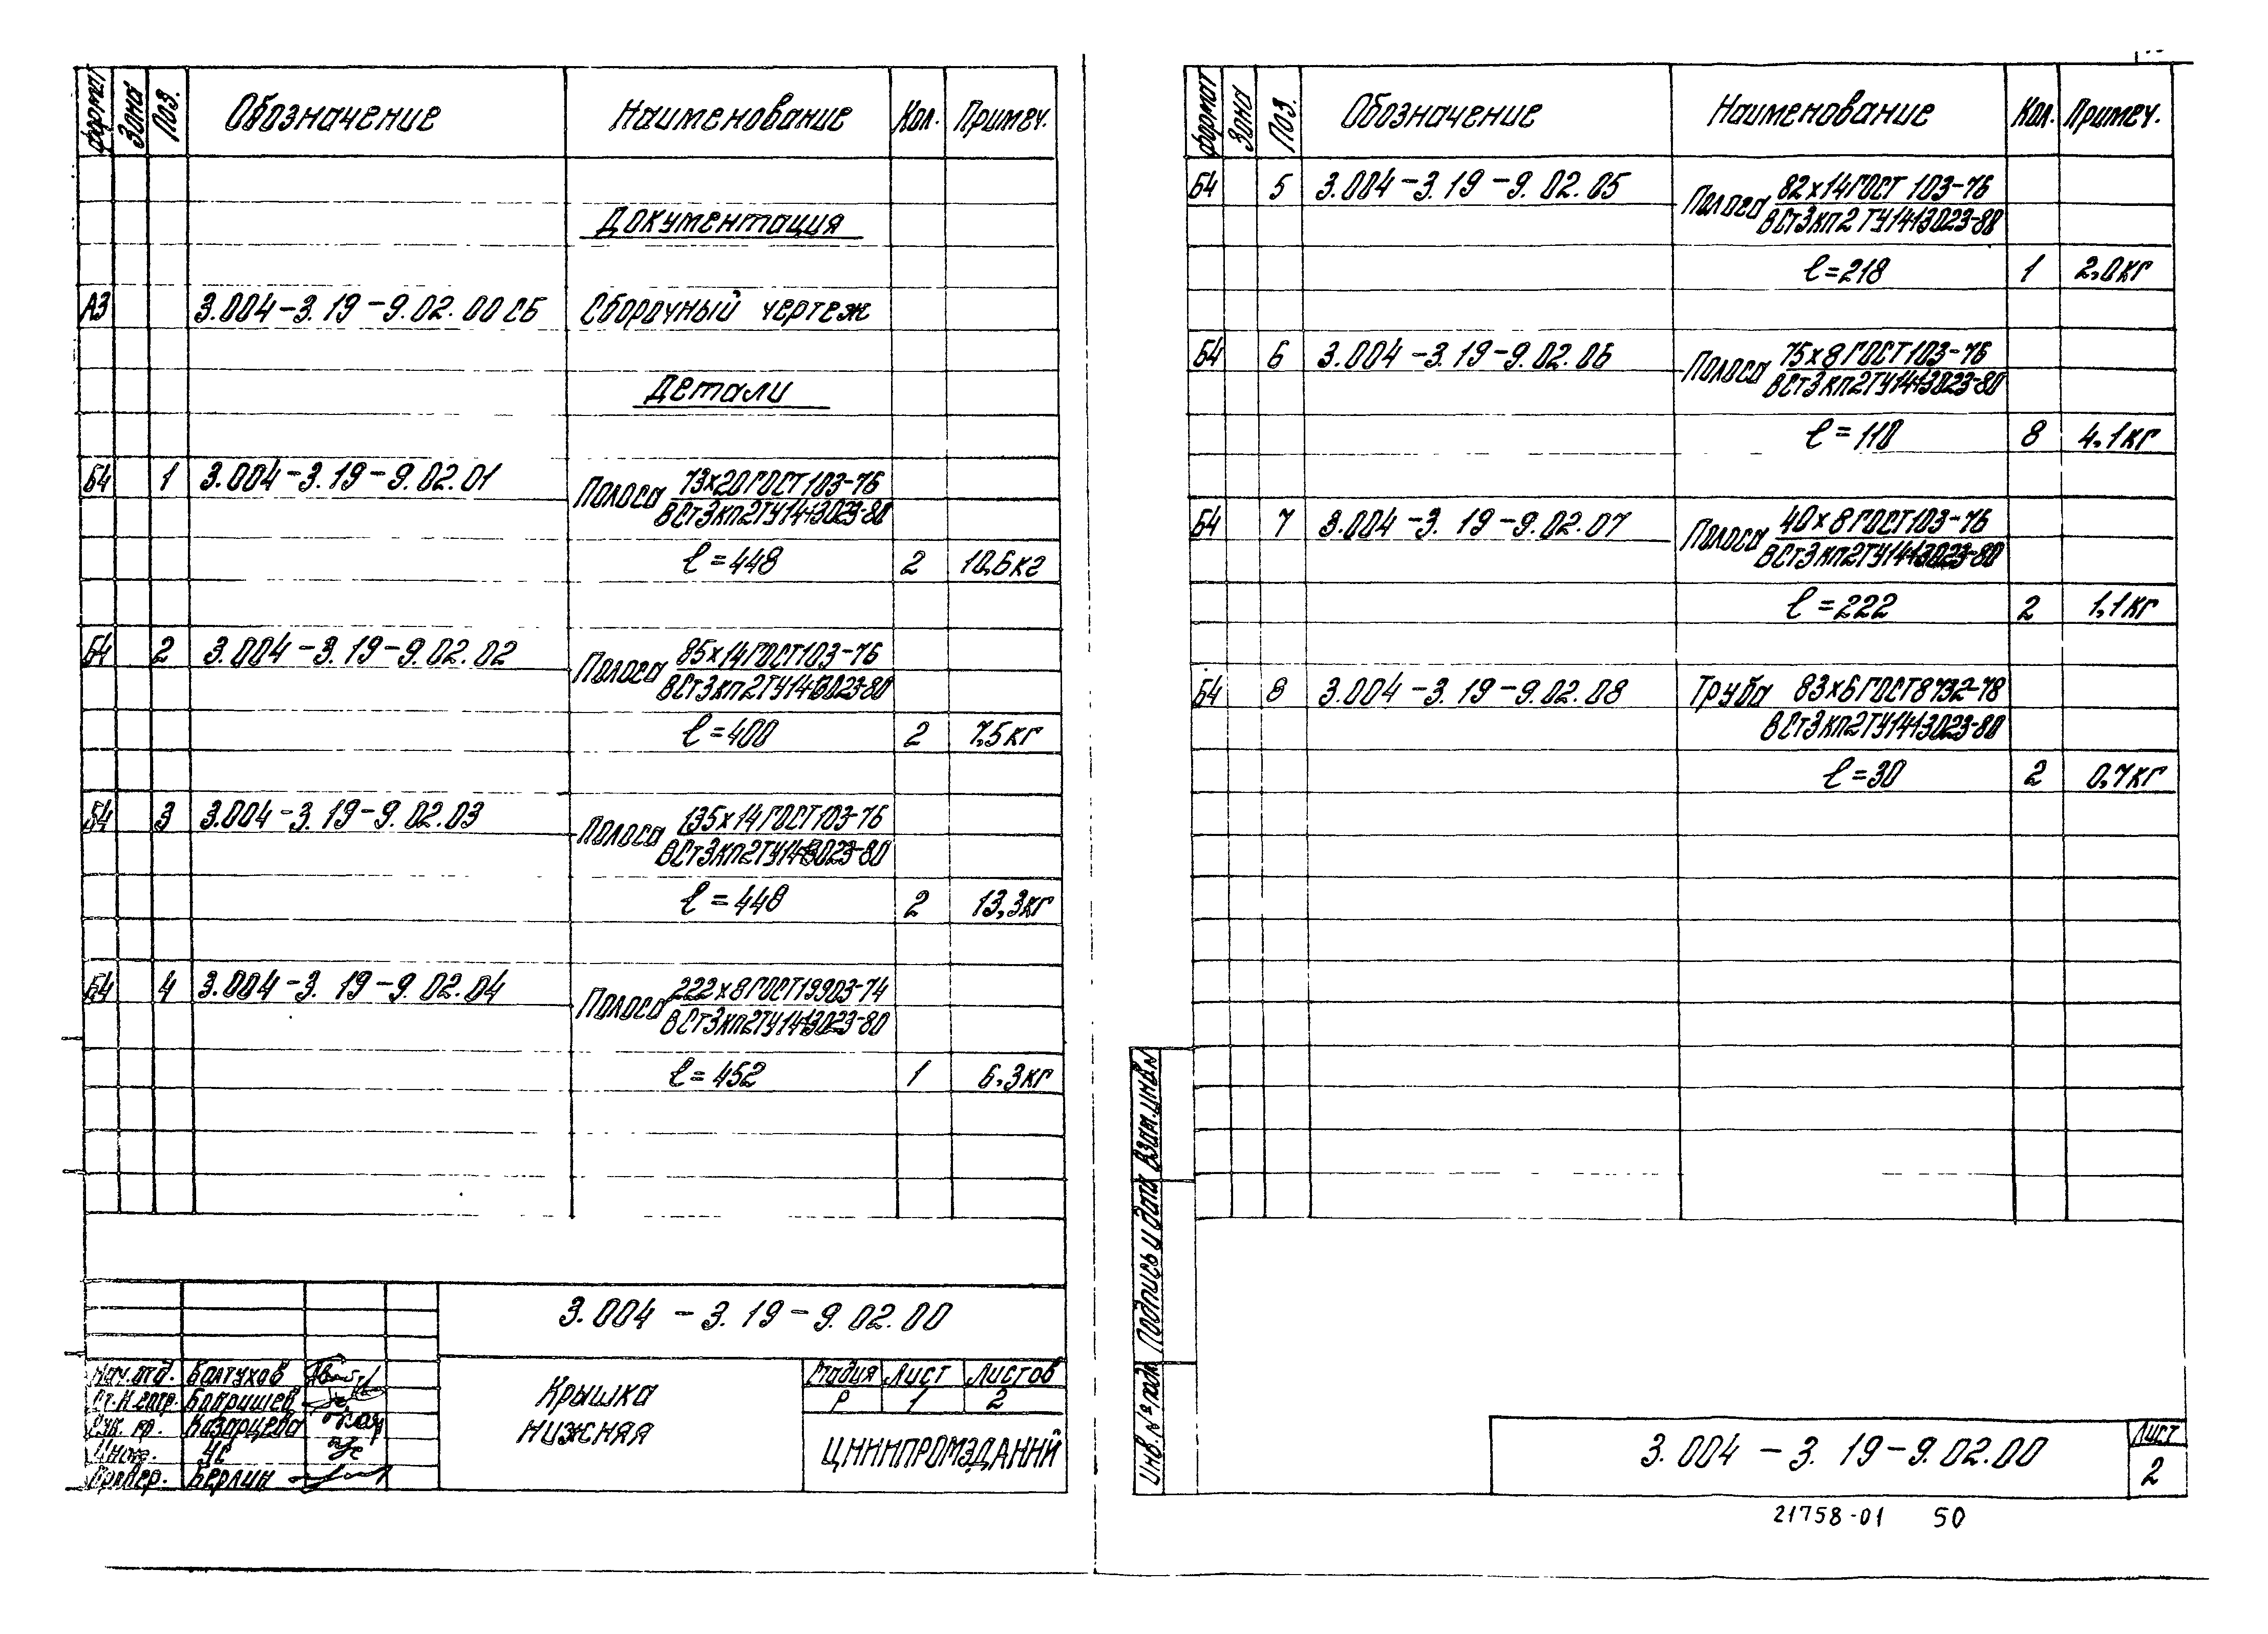 Формат Зона Поз. Обозначение Наименование Кол. Примеч.
Документация
А3 3.004-3.19-9.02.00СБ Сборочный чертеж
Детали
Б4 1 3.004-3.19-9.02.01 Полоса 73х20 ГОСТ 103-76
ВСт3кп2ТУ14-1-3023-80
ℓ=448 2 10,6кг
Б4 2 3.004-3.19-9.02.02 Полоса 85х14 ГОСТ 103-76
ВСт3кп2ТУ14-1-3023-80
ℓ=400 2 7,5кг
Б4 3 3.004-3.19-9.02.03 Полоса 135х14 ГОСТ 103-76
ВСт3кп2ТУ14-1-3023-80
ℓ=448 2 13,3кг
Б4 4 3.004-3.19-9.02.04 Полоса 222х8 ГОСТ 19903-74
ВСт3кп2ТУ14-1-3023-80
ℓ=452 1 6.3кг
3.004-3.19-9.02.00
Нач.отд. Болтухов
Казарцева
Инж. Ус
Провер. Берлин
Крышка
нижняя
Стадия Лист Листов
Р 1 2
ЦНИИПРОМЗДАНИЙ
Формат Зона Поз. Обозначение Наименование Кол. Примеч.
Б4 5 3.004-3.19-9.02.05 Полоса 82х14 ГОСТ 103-76
ВСт3кп2 ТУ14-1-3023-80
ℓ=218 1 2,0кг
Б4 6 3.004-3.19-9.02.06 Полоса 75х8 ГОСТ 103-76
ВСт3кп2ТУ14-1-3023-80
ℓ=110 8 4.1кг
Б4 7 3.004-3.19-9.02.07 Полоса 40х8 ГОСТ 103-76
ВСт3кп2ТУ14-1-3023-80
ℓ=222 2 1,1кг
Б4 8 3.004-3.19-9.02.08 Труба 83х6 ГОСТ 8732-78
ВСт3кп2ТУ14-1-3023-80
ℓ=30 2 0,7кг
Инв. № подл. Подпись и дата Взам.инв.№
3.004-3.19-9.02.00
Лист
2
21758-01 50